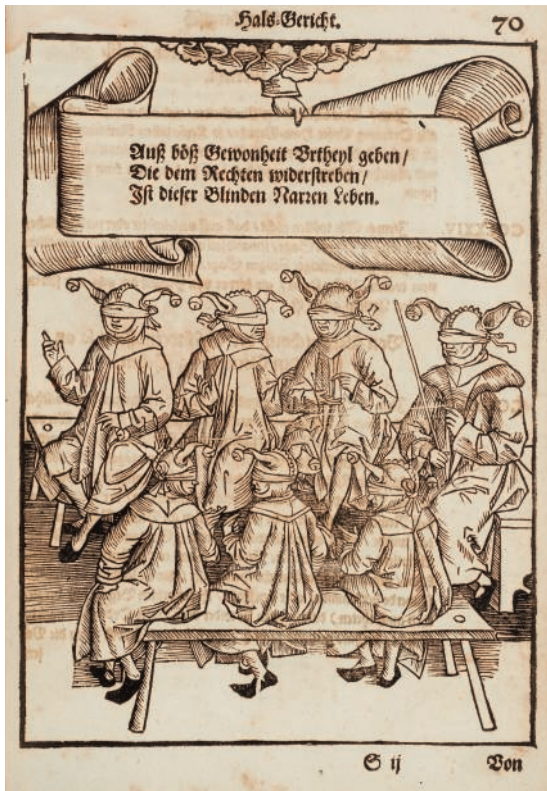 Hals-Gericht.
70
Auß böß Gewonheit Vrtheyl geben/
Die dem Rechten widerstreben/
Ist dieser Blinden Narren Leben.
S ij
Von